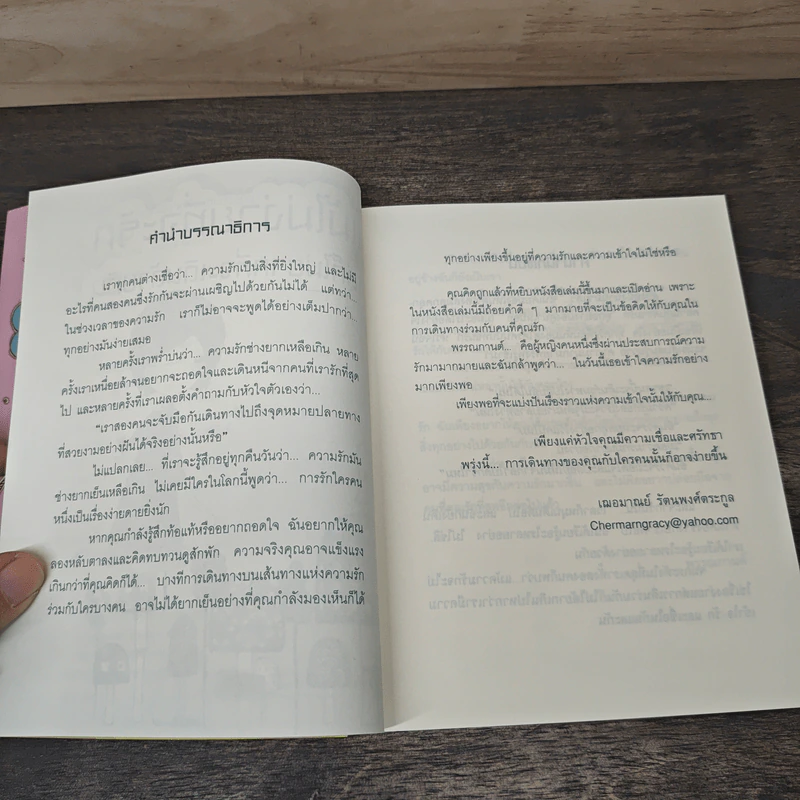 คำนำบรรณาธิการ
เราทุกคนต่างเชื่อว่า... ความรักเป็นสิ่งที่ยิ่งใหญ่ และไม่มี
อะไรที่คนสองคนซึ่งรักกันจะผ่านเผชิญไปด้วยกันไม่ได้ แต่ทว่า...
ในช่วงเวลาของความรัก เราก็ไม่อาจจะพูดได้อย่างเต็มปากว่า...
ทุกอย่างมันง่ายเสมอ
หลายครั้งเราพร่ำบ่นว่า... ความรักช่างยากเหลือเกิน หลาย
ครั้งเราเหนื่อยล้าจนอยากจะถอดใจและเดินหนีจากคนที่เรารักที่สุด
ไป และหลายครั้งที่เราเผลอตั้งคำถามกับหัวใจตัวเองว่า...
"เราสองคนจะจับมือกันเดินทางไปถึงจุดหมายปลายทาง
ที่สวยงามอย่างฝันได้จริงอย่างนั้นหรือ"
ไม่แปลกเลย... ที่เราจะรู้สึกอยู่ทุกคืนวันว่า... ความรักมัน
ช่างยากเย็นเหลือเกิน ไม่เคยมีใครในโลกนี้พูดว่า... การรักใครคน
หนึ่งเป็นเรื่องง่ายดายยิ่งนัก
หากคุณกำลังรู้สึกท้อแท้หรืออยากถอดใจ ฉันอยากให้คุณ
ลองหลับตาลงและคิดทบทวนดูสักพัก ความจริงคุณอาจแข็งแรง
เกินกว่าที่คุณคิดก็ได้... บางทีการเดินทางบนเส้นทางแห่งความรัก
ร่วมกับใครบางคน อาจไม่ได้ยากเย็นอย่างที่คุณกำลังมองเห็นก็ได้
ทุกอย่างเพียงขึ้นอยู่ที่ความรักและความเข้าใจไม่ใช่หรือ
คุณคิดถูกแล้วที่หยิบหนังสือเล่มนี้ขึ้นมาและเปิดอ่าน เพราะ
ในหนังสือเล่มนี้มีถ้อยคำดี ๆ มากมายที่จะเป็นข้อคิดให้กับคุณใน
การเดินทางร่วมกับคนที่คุณรัก
พรรณกานต์... คือผู้หญิงคนหนึ่งซึ่งผ่านประสบการณ์ความ
รักมามากมายและฉันกล้าพูดว่า... ในวันนี้เธอเข้าใจความรักอย่าง
มากเพียงพอ
เพียงพอที่จะแบ่งปันเรื่องราวแห่งความเข้าใจนั้นให้กับคุณ...
เพียงแค่หัวใจคุณมีความเชื่อและศรัทธา
พรุ่งนี้... การเดินทางของคุณกับใครคนนั้นก็อาจง่ายขึ้น
เฌอมาณย์ รัตนพงศ์ตระกูล
Chermarngracy@yahoo.com